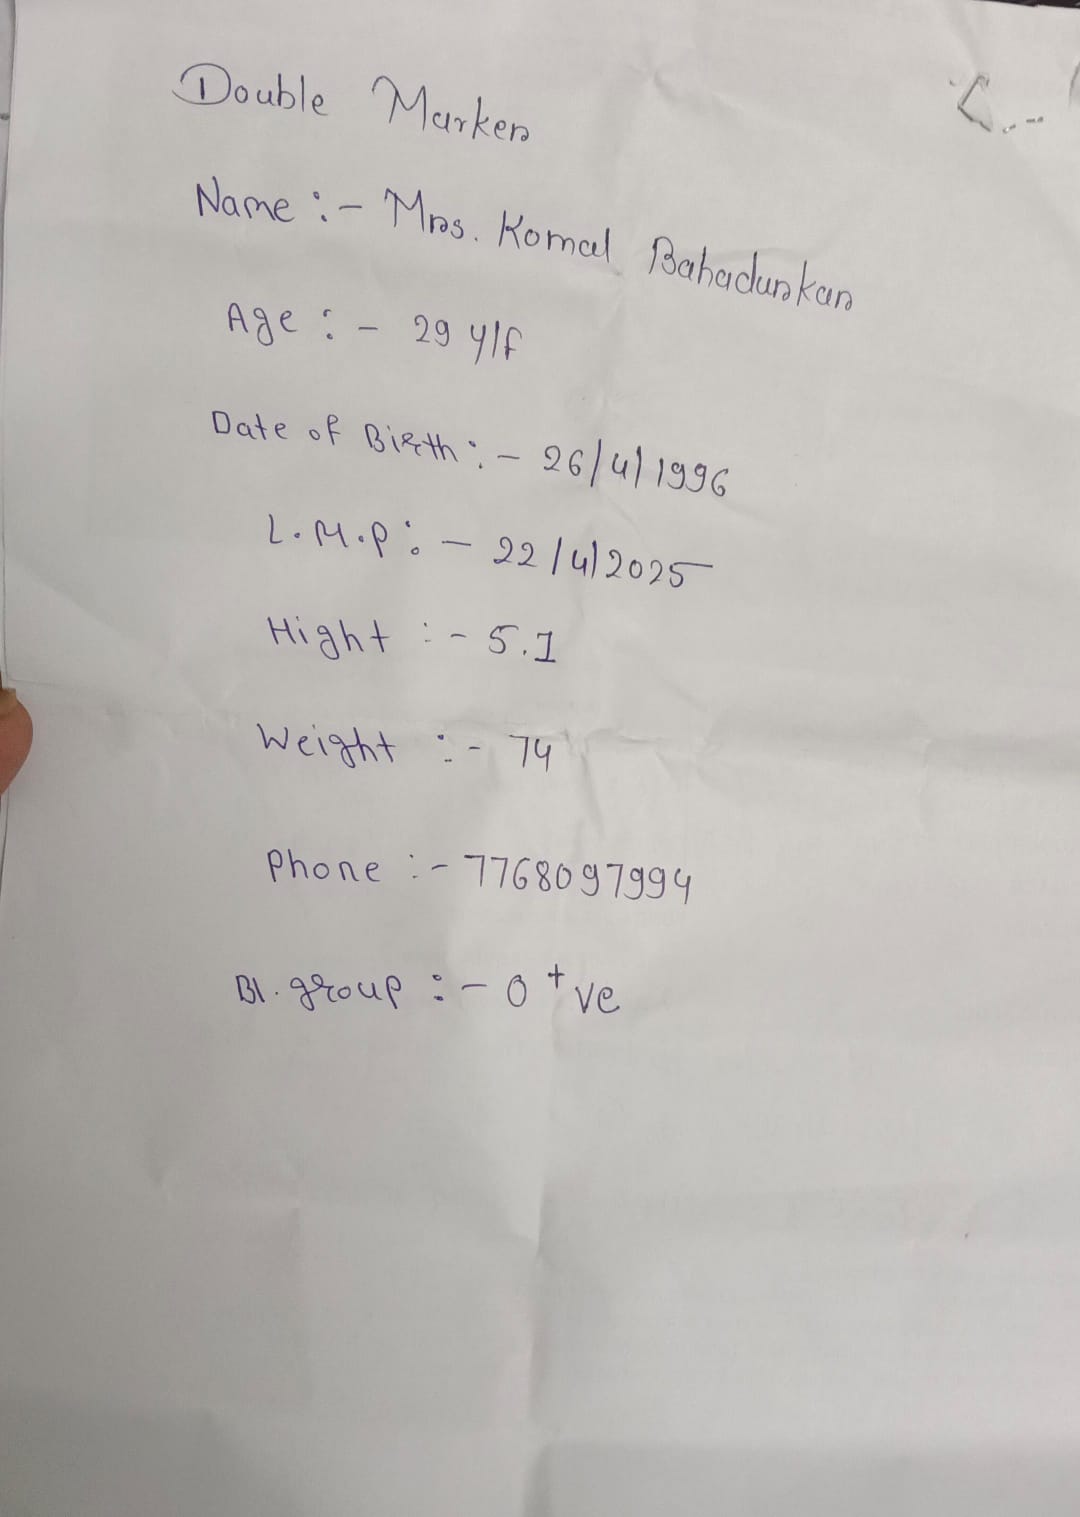 Double Marker
Name :- Mrs. Komal Bahadurkar
Age :- 29 y/f
Date of Birth :- 26/4/1996
L.M.P :- 22/4/2025
Hight :- 5.1
Weight :- 74
Phone :- 7768097994
Bl. group :- O +ve